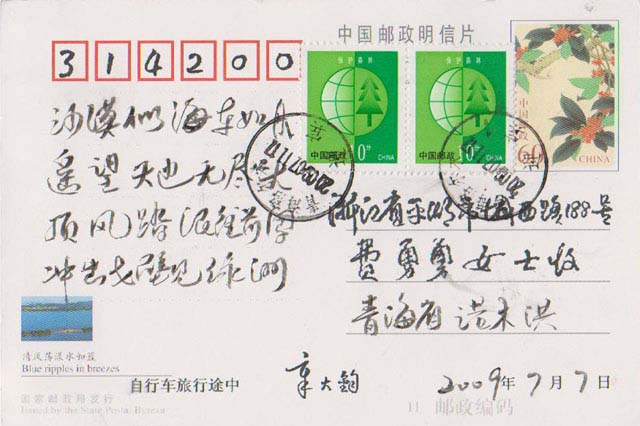 中国邮政明信片
314200
保护森林
保护森林
中国邮政
10分
CHINA
中国邮政
10分
CHINA
中国邮政
60分
CHINA
沙漠似海车如舟
遥望天地无尽头
顶风踏浪往前骑
冲出戈壁见绿洲
浙江省平湖市城西路188号
费勇勇女士收
青海省诺木洪
清风荡漾水如蓝
Blue ripples in breezes
自行车旅行途中
章大钧
2009年7月7日
国家邮政局发行
Issued by the State Postal Bureau
邮政编码